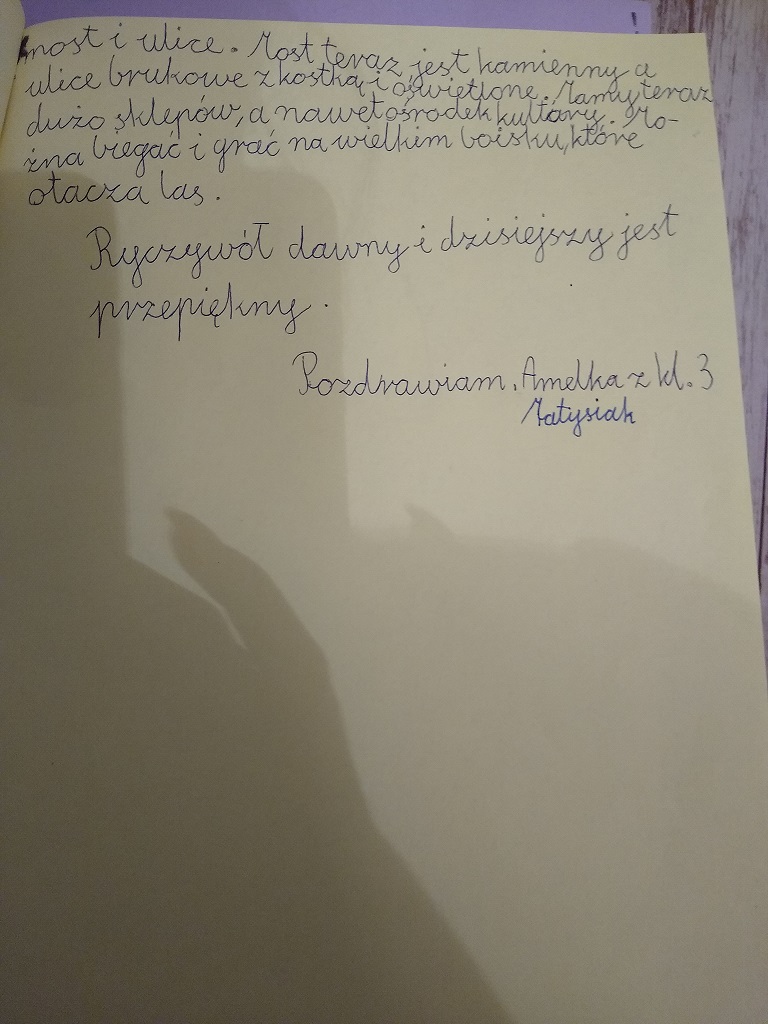 most i ulice. Most teraz jest kamienny a
ulice brukowe z kostką i oświetlone. Mamy teraz
dużo sklepów, a nawet ośrodek kultury. Mo-
żna biegać i grać na wielkim boisku, które
otacza las.
Ryczywół dawny i dzisiejszy jest
przepiękny.
Pozdrawiam, Amelka z kl. 3
Matysiak